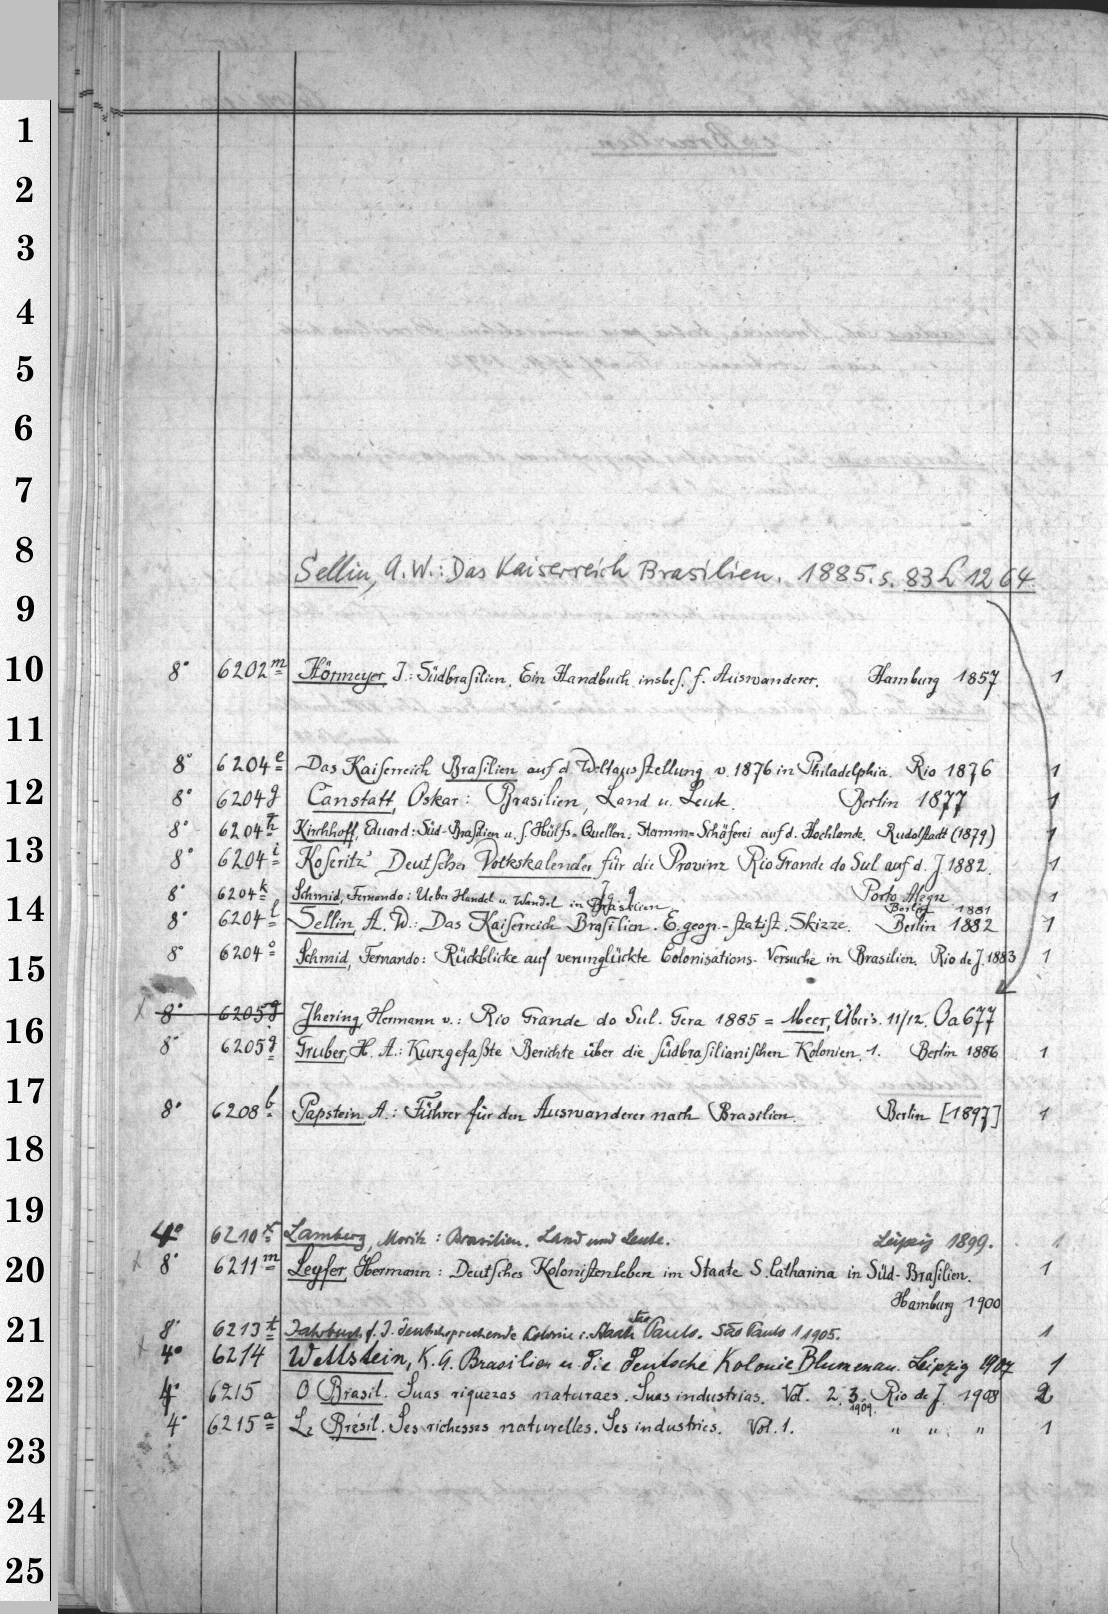 1
2
3
4
5
6
7
8
Sellin, A.W.: Das Kaiserreich Brasilien. 1885. s. 83 L 1264
9
10 8° 6202 m Hörmeyer, J.: Südbrasilien. Ein Handbuch insbes. f. Auswanderer. Hamburg 1857 1
11
8° 6204 e Das Kaiserreich Brasilien auf d. Weltausstellung v. 1876 in Philadelphia. Rio 1876 1
12 8° 6204 g Canstatt, Oskar: Brasilien, Land u. Leute. Berlin 1877 1
8° 6204 h Kirchhoff, Eduard: Süd-Brasilien u. s. Hülfs-Quellen. Stamm-Schäferei auf d. Hochlande. Rudolstadt (1879) 1
13 8° 6204 i Koseritz' Deutscher Volkskalender für die Provinz Rio Grande do Sul auf d. J. 1882. 1
Jg. 9 Porto Alegre
8° 6204 k Schmid, Fernando: Ueber Handel u. Wandel in Brasilien 1881 1
14 8° 6204 l Sellin, A. W.: Das Kaiserreich Brasilien. E. geogr.-statist. Skizze. Berlin 1882 1
15 8° 6204 o Schmid, Fernando: Rückblicke auf verunglückte Colonisations-Versuche in Brasilien. Rio de J. 1883 1
8° 6205 g Jhering, Hermann v.: Rio Grande do Sul. Gera 1885 = Meer, Übers. 11/12. Oa 677
16 8° 6205 g Gruber, H. A.: Kurzgefaßte Berichte über die südbrasilianischen Kolonien. 1. Berlin 1886 1
17 8° 6208 b Papstein, A.: Führer für den Auswanderer nach Brasilien. Berlin [1897] 1
18
19 4° 6210 x Lamberg, Moritz: Brasilien. Land und Leute. Leipzig 1899. 1
20 8° 6211 m Leyfer, Hermann: Deutsches Kolonistenleben im Staate S. Catharina in Süd-Brasilien. 1
Hamburg 1900
21 8° 6213 t Jahrbuch f. d. deutschsprechende Kolonie i. Staate São Paulo. São Paulo 1 1905. 1
4° 6214 Wettstein, K. A. Brasilien u. die deutsche Kolonie Blumenau. Leipzig 1907 1
22 4° 6215 O Brasil. Suas riquezas naturaes. Suas industrias. Vol. 2. 3. Rio de J. 1908 2
1909.
4° 6215 a Le Brésil. Ses richesses naturelles. Ses industries. Vol. 1. " " " 1
23
24
25